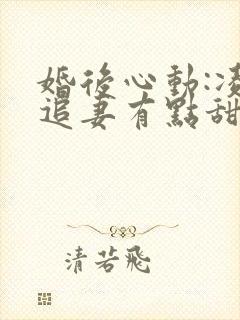 婚後心動:凌
追妻有點甜
清若飛